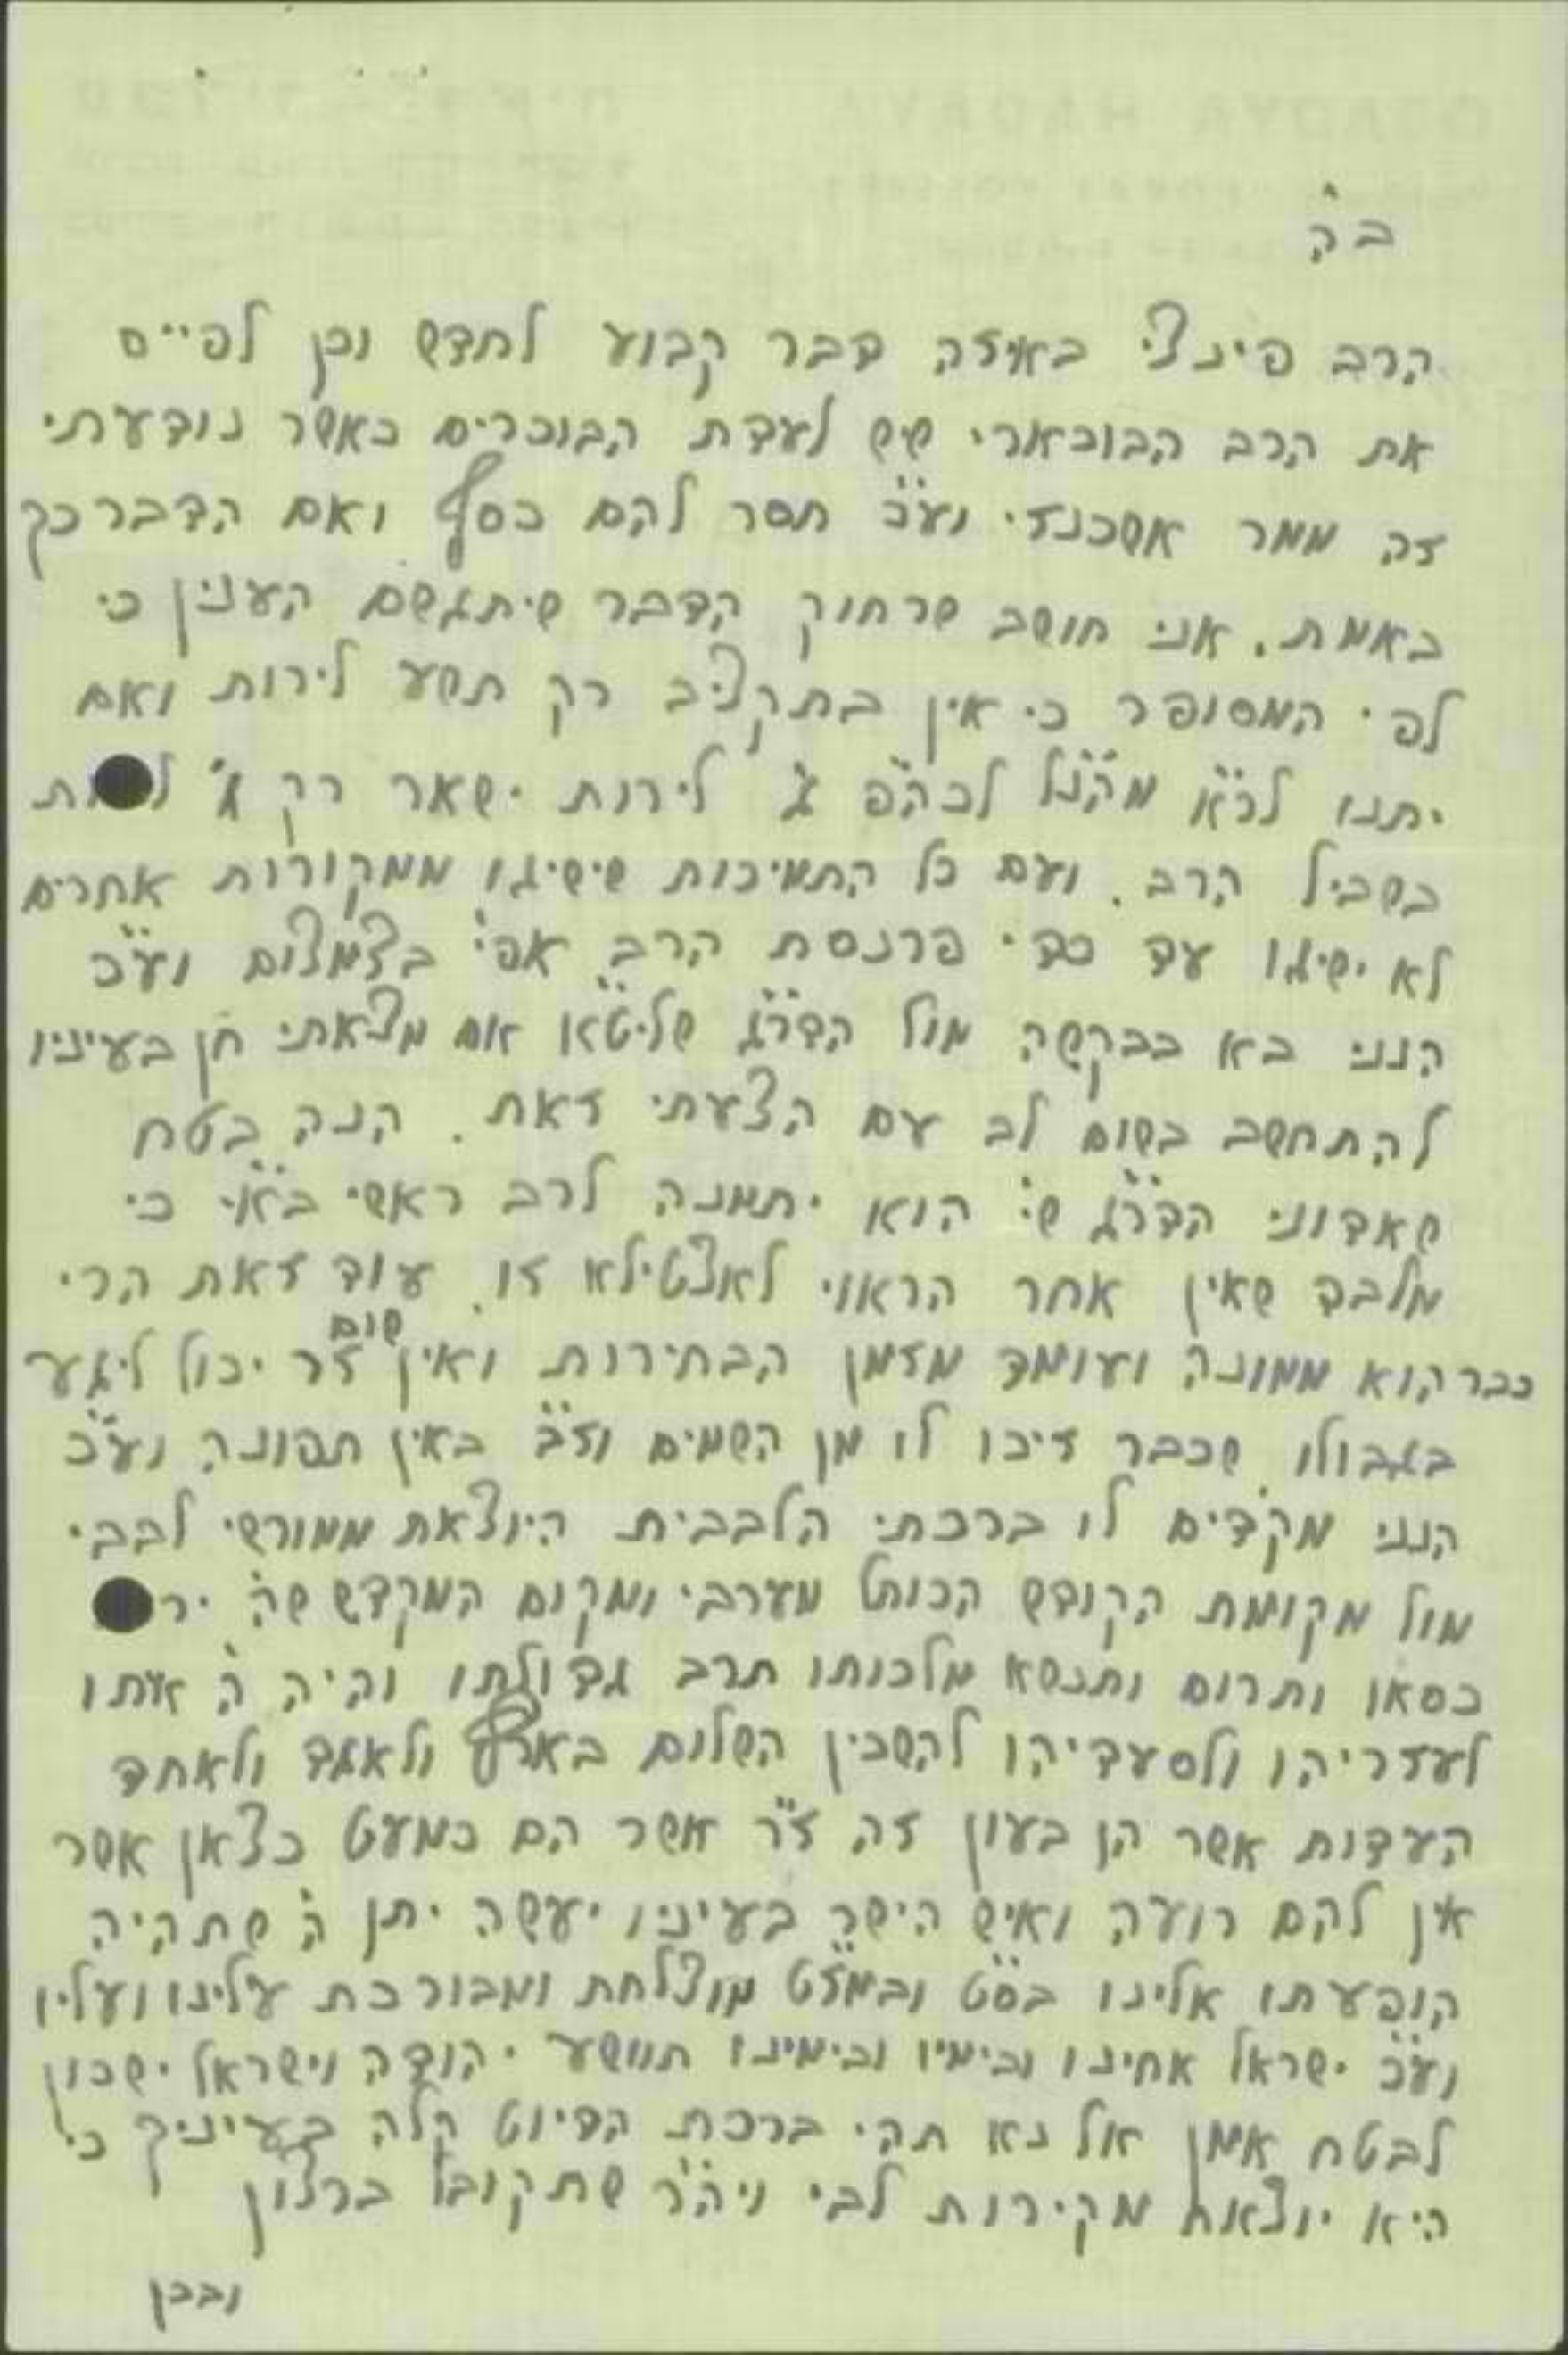 בה
הרב פינצי באיזה דבר קבוע לחדש וכן לפייס
את הרב הבוכארי שיש לעדת הבוכרים כאשר נודעתי
זה ממר אשכנזי וע"כ חסר להם כסף ואם הדבר כך
באמת. אני חושב שרחוק הדבר שיתגשם הענין כי
לפי המסופר כי אין בתקציב רק תשע לירות ואם
יתנו לכ"א מהנ"ל לכה"פ ג' לירות ישאר רק ג'
בשביל הרב. ועם כל התמיכות שישיגו ממקורות אחרים
לא ישיגו עד כדי פרנסת הרב אפי' בצמצום וע"כ
הנני בא בבקשה מול הדר"ג שליט"א אם מצאתי חן בעיניו
להתחשב בשום לב עם הצעתי זאת. הנה בטח
שאדוני הדר"ג ש' הוא יתמנה לרב ראשי בא"י כי
מלבד שאין אחר הראוי לאצטילא זו. עוד זאת הרי
שום
כבר הוא ממונה ועומד מזמן הבחירות ואין זר יכול ליגע
בגבולו שכבר זיכו לו מן השמים וז"ב באין תפונה וע"כ
הנני מקדים לו ברכתי הלבבית היוצאת ממורשי לבבי
מול מקומת הקודש הכותל מערבי ומקום המקדש שה'
כסאו ותרום ותנשא מלכותו תרב גדולתו והיה ה' אתו
לעזריהו ולסעדיהו להשכין השלום בארץ ולאגד ולאחד
העדות אשר הן בעון זה ז"ר אשר הם כמעט כצאן אשר
אין להם רועה ואיש הישר בעיניו יעשה יתן ה' שתהיה
הופעתו אלינו בס"ט ובמז"ט מוצלחת ומבורכת עלינו ועליו
וע"כ ישראל אחינו ובימיו ובימינו תוושע יהודה וישראל ישכון
לבטח אמן אל נא תהי ברכת הדיוט קלה בעיניך כי
היא יוצאת מקירות לבי ויה"ר שתקובל ברצון
ובכן